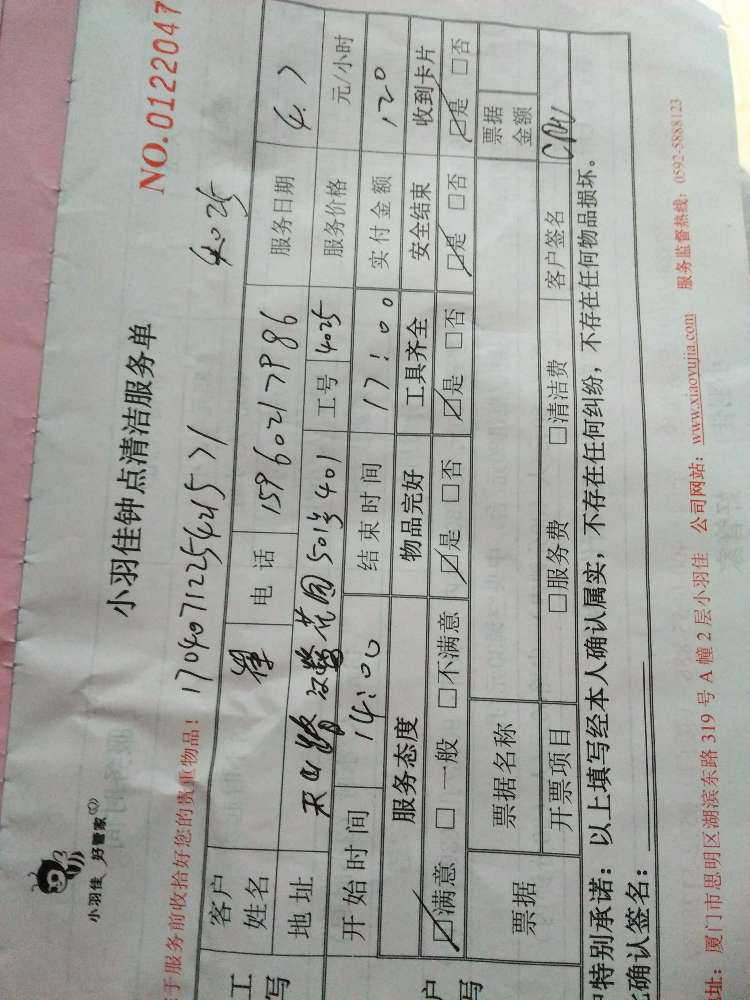 小羽佳 好管家
小羽佳钟点清洁服务单
NO.0122047
于服务前收拾好您的贵重物品!
4025
客户姓名 电话 15960217986 服务日期 4.7
地址 花园501号401 工号 4025 服务价格 元/小时
开始时间 14:00 结束时间 17:00 实付金额 120
服务态度 物品完好 工具齐全 安全结束 收到卡片
☑满意 □一般 □不满意 ☑是 □否 ☑是 □否 ☑是 □否 ☑是 □否
票据 票据名称 票据金额
开票项目 □服务费 □清洁费 客户签名
特别承诺:以上填写经本人确认属实,不存在任何纠纷,不存在任何物品损坏。
确认签名:
址:厦门市思明区湖滨东路 319 号 A 幢 2 层小羽佳 公司网站:www.xiaoyujia.com 服务监督热线:0592-5888123